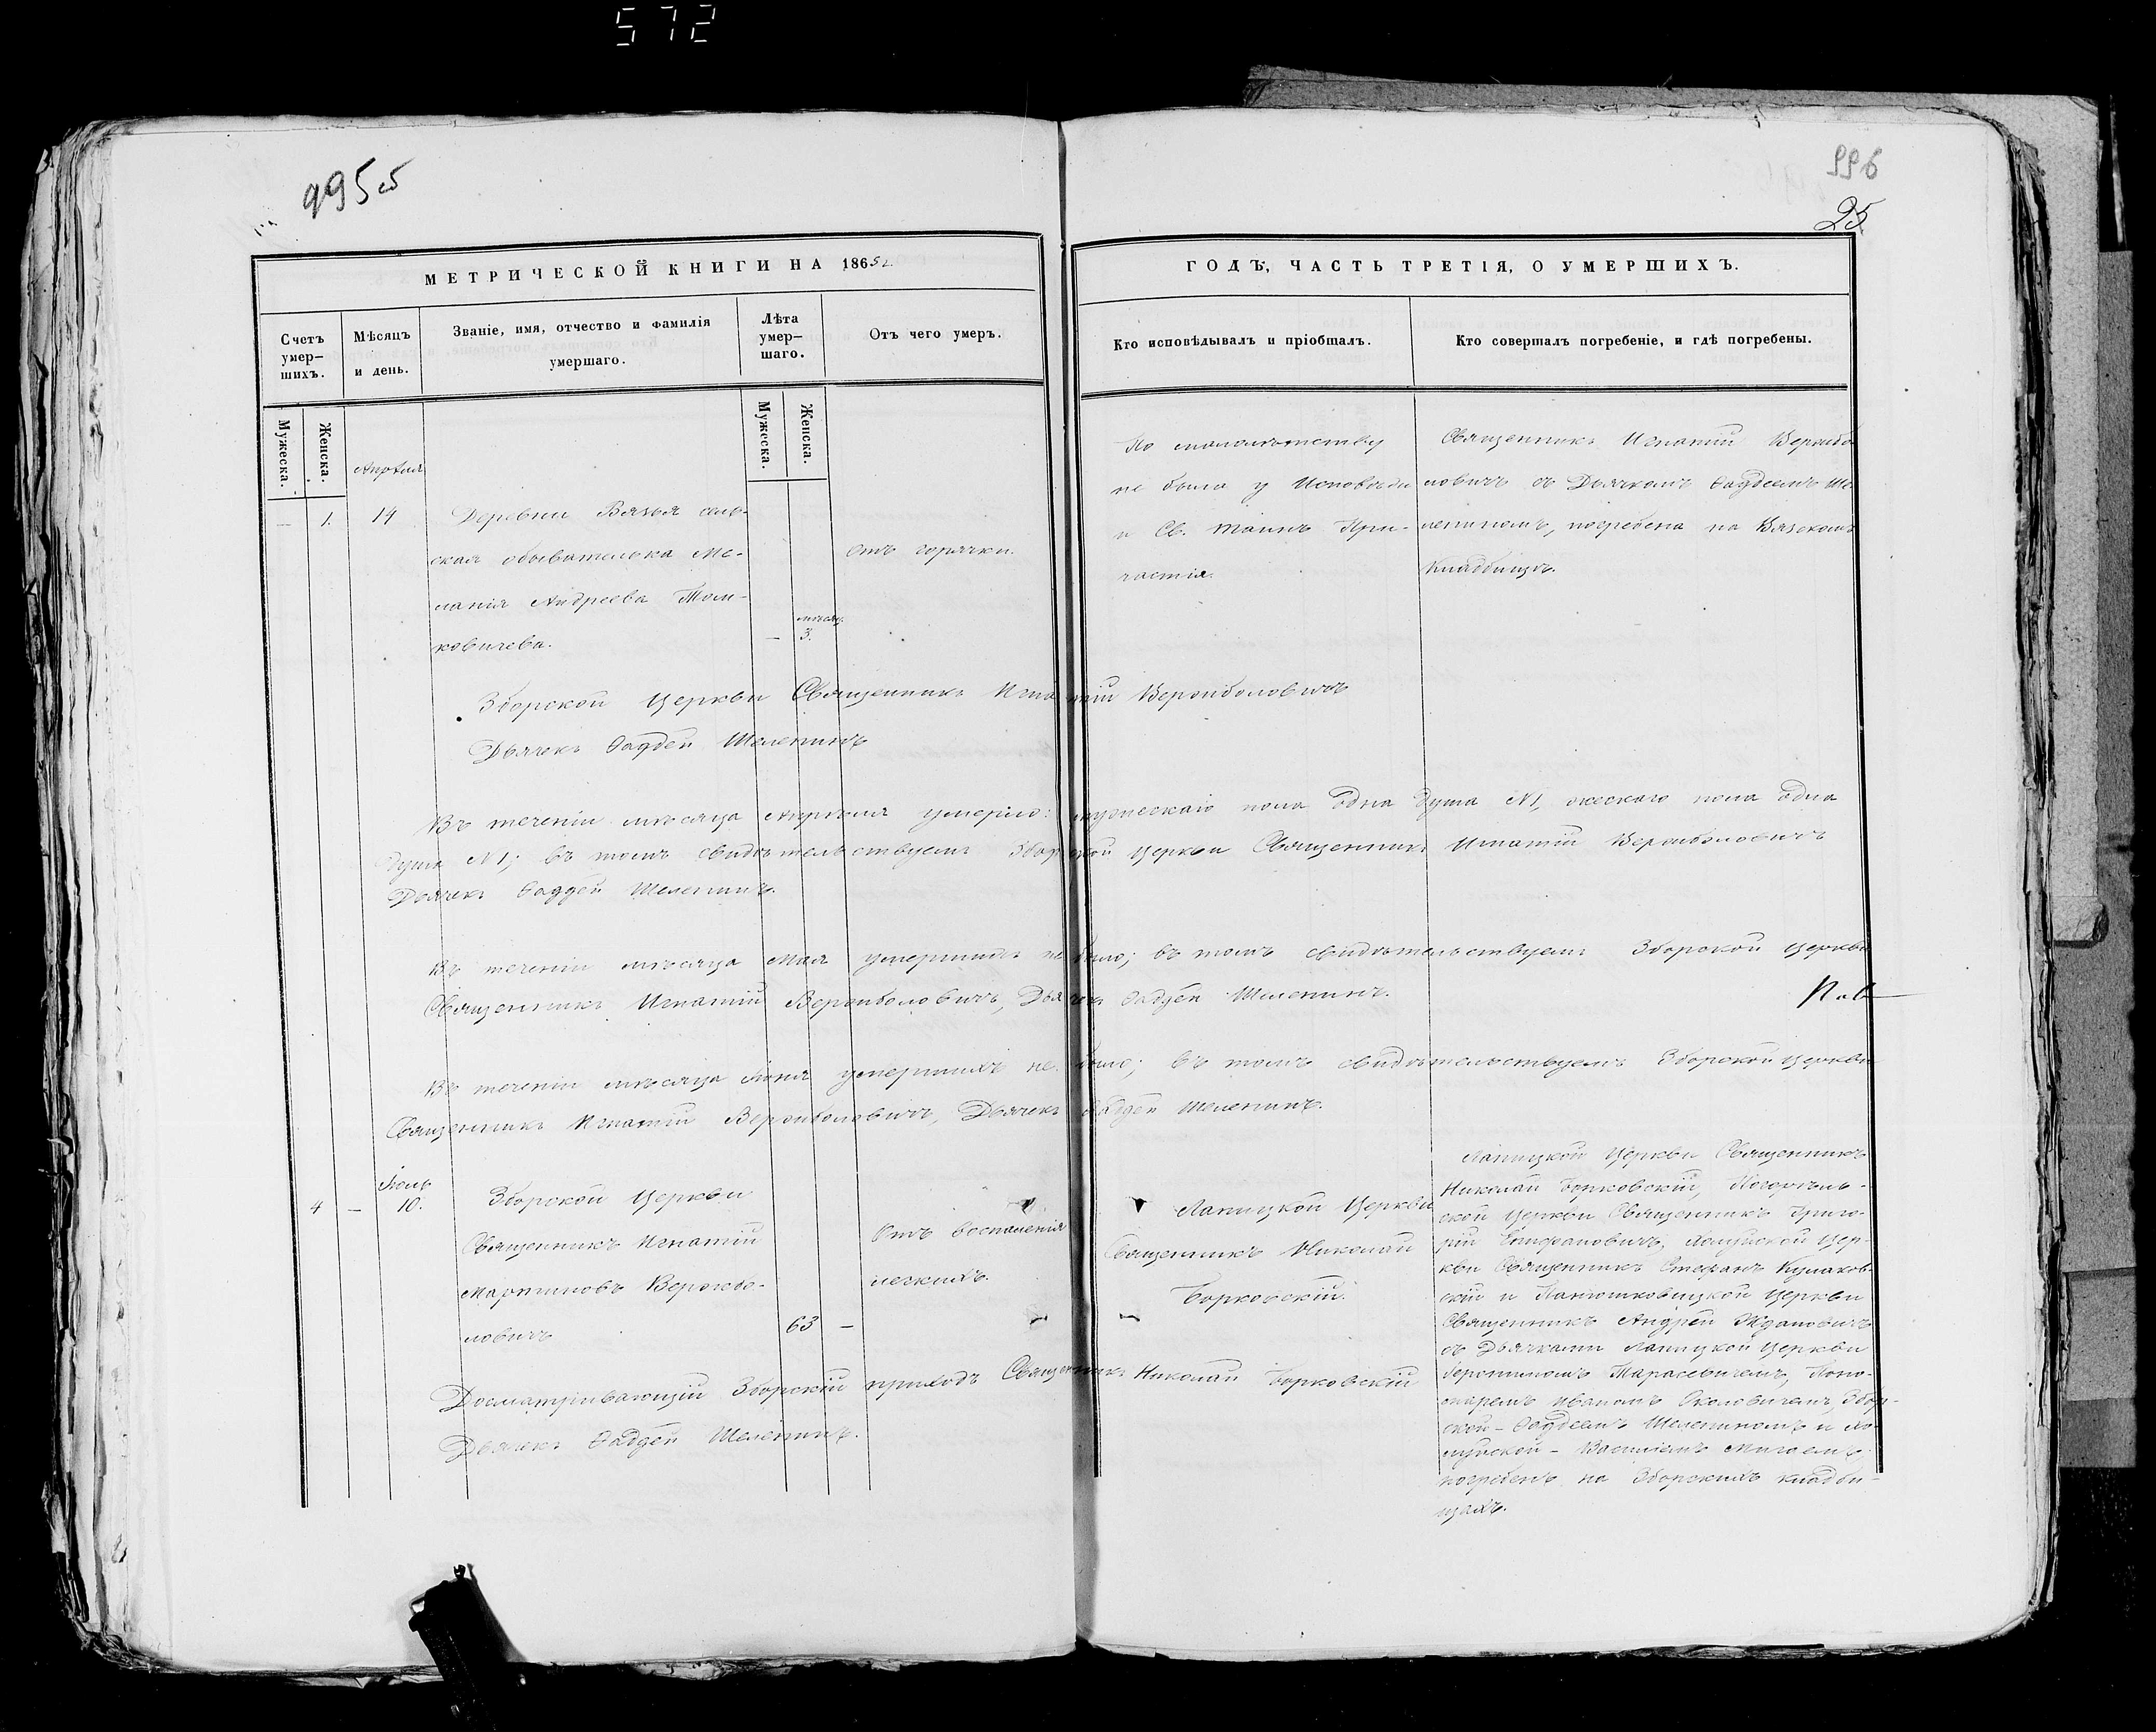 572
995об
996
25
МЕТРИЧЕСКОЙ КНИГИ НА 1865
ГОДЪ, ЧАСТЬ ТРЕТІЯ, О УМЕРШИХЪ.
Счетъ умер–шихъ.
Мѣсяцъ и день.
Званіе, имя, отчество и фамилія умершаго.
Лѣта умер–шаго.
Отъ чего умеръ.
Кто исповѣдывалъ и пріобщалъ.
Кто совершалъ погребеніе, и гдѣ погребены.
Мужеска.
Женска.
Мужеска.
Женска.
Апрѣля
— 1. 14
Деревни Вязья сель-
ская обывателька Ме-
ланія Андреева Том-
ковичева.
— мѣсяц. 3.
Отъ горячки.
По малолѣтству
не была у Исповѣди
и Св. Таинъ При-
частія.
Священникъ Игнатій Вержбо
ловичъ съ Дьячкомъ Фаддеемъ Ше
лепиномъ, погребена на Вязскомъ
Кладбищѣ.
Зборской Церкви Священникъ Игнатій Вержболовичъ
Дьячекъ Фаддей Шелепинъ
Въ теченіи мѣсяца Апрѣля умерло: мужескаго пола одна душа №1, женскаго пола одна
душа №1; въ томъ свидѣтельствуемъ Зборской Церкви Священникъ Игнатій Вержболовичъ
Дьячекъ Фаддей Шелепинъ.
Въ теченіи мѣсяца Мая умершихъ не было; въ томъ свидѣтельствуемъ Зборской Церкви
Священникъ Игнатій Вержболовичъ, Дьячекъ Фаддей Шелепинъ.
Въ теченіи мѣсяца Іюня умершихъ не было; въ томъ свидѣтельствуемъ Зборской Церкви
Священникъ Игнатій Вержболовичъ, Дьячекъ Фаддей Шелепинъ.
Іюль
4 — 10.
Зборской Церкви
Священникъ Игнатій
Мартиновъ Вержбо-
ловичъ
63 —
Отъ воспаленія
легкихъ.
Лапицкой Церкви
Священникъ Николай
Борковскій.
Лапицкой Церкви Священникъ
Николай Борковскій, Погорѣль-
ской Церкви Священникъ Григо-
рій Епифановичъ, Холуйской Цер-
кви Священникъ Стефанъ Кулаков-
скій и Панюшковицкой Церкви
Священникъ Андрей Ждановичъ
съ Дьячками Лапицкой Церкви
Іеронимомъ Тарасевичемъ, Поно-
маремъ Иваномъ Околовичемъ, Збор-
ской – Фаддеемъ Шелепиномъ и Хо-
луйской – Василіемъ Мигаемъ;
погребенъ на Зборскихъ кладби-
щахъ.
Досматривающій Зборскій приходъ Священникъ Николай Борковскій
Дьячекъ Фаддей Шелепинъ.